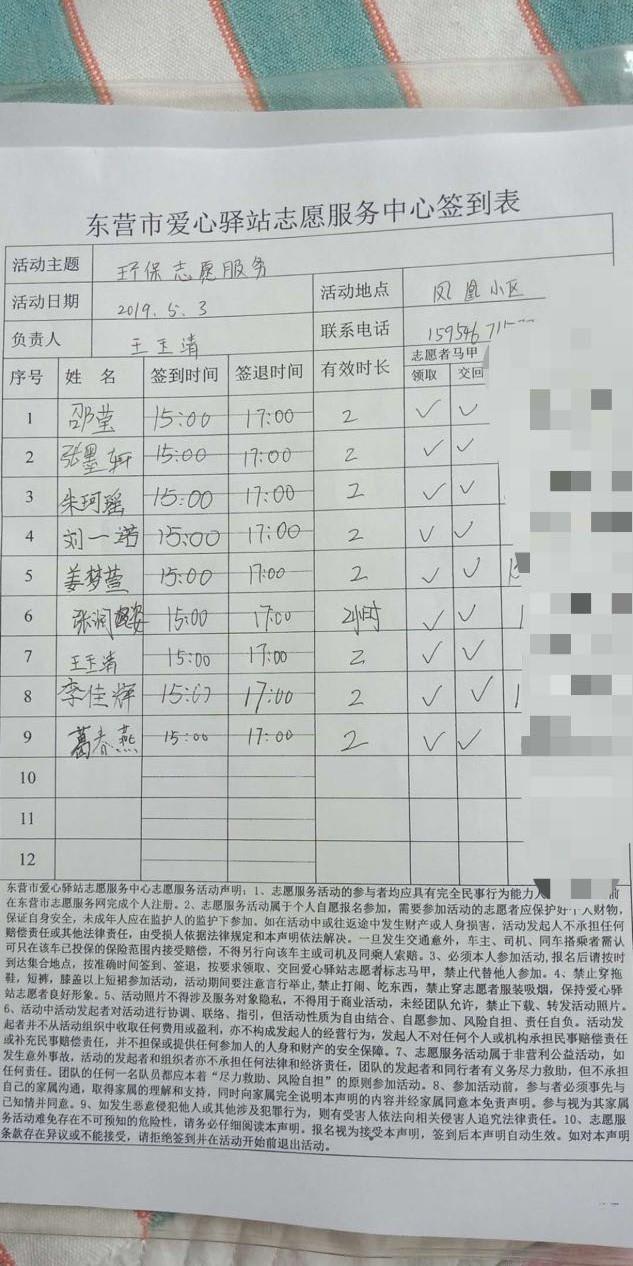 东营市爱心驿站志愿服务中心签到表
活动主题 环保志愿服务
活动日期 2019.5.3 活动地点 凤凰小区
负责人 王玉清 联系电话 159546711
序号 姓 名 签到时间 签退时间 有效时长 志愿者马甲
领取 交回
1 邵莹 15:00 17:00 2 ✓ ✓
2 张墨轩 15:00 17:00 2 ✓ ✓
3 朱珂瑶 15:00 17:00 2 ✓ ✓
4 刘一诺 15:00 17:00 2 ✓ ✓
5 姜梦萱 15:00 17:00 2 ✓ ✓
6 张润 15:00 17:00 2小时 ✓ ✓
7 王玉清 15:00 17:00 2 ✓ ✓
8 李佳辉 15:00 17:00 2 ✓ ✓
9 葛春燕 15:00 17:00 2 ✓ ✓
10
11
12
东营市爱心驿站志愿服务中心志愿服务活动声明：1、志愿服务活动的参与者均应具有完全民事行为能力人 前
在东营市志愿服务网完成个人注册。2、志愿服务活动属于个人自愿报名参加，需要参加活动的志愿者应保护好个人财物，
保证自身安全，未成年人应在监护人的监护下参加。如在活动中或往返途中发生财产或人身损害，活动发起人不承担任何
赔偿责任或其他法律责任，由受损人依据法律规定和本声明依法解决。一旦发生交通意外，车主、司机、同车搭乘者需认
可只在该车已投保的保险范围内接受赔偿，不得另行向该车主或司机及同乘人索赔。3、必须本人参加活动，报名后请按时
到达集合地点，按准确时间签到、签退，按要求领取、交回爱心驿站志愿者标志马甲，禁止代替他人参加。4、禁止穿拖
鞋，短裤，膝盖以上短裙参加活动，活动期间要注意言行举止，禁止打闹、吃东西，禁止穿志愿者服装吸烟，保持爱心驿
站志愿者良好形象。5、活动照片不得涉及服务对象隐私，不得用于商业活动，未经团队允许，禁止下载、转发活动照片。
6、活动中活动发起者对活动进行协调、联络、指引，但活动性质为自由结合、自愿参加、风险自担、责任自负。活动发
起者并不从活动组织中收取任何费用或盈利，亦不构成发起人的经营行为，发起人不对任何个人或机构承担民事赔偿责任
或补充民事赔偿，并不担保或提供任何参加人的人身和财产的安全保障。7、志愿服务活动属于非营利公益活动，如
发生意外事故，活动的发起者和组织者亦不承担任何法律和经济责任，团队的发起者和同行者有义务尽力救助，但不承担
任何责任。团队的任何一名队员都应本着“尽力救助、风险自担”的原则参加活动。8、参加活动前，参与者必须事先与
自己的家属沟通，取得家属的理解和支持，同时向家属完全说明本声明的内容并经家属同意本免责声明。参与视为其家属
已知情并同意。9、如发生恶意侵犯他人或其他涉及犯罪行为，则有受害人依法向相关侵害人追究法律责任。10、志愿服
务活动难免存在不可预知的危险性，请务必仔细阅读本声明。报名视为接受本声明，签到后本声明自动生效。如对本声明
条款存在异议或不能接受，请拒绝签到并在活动开始前退出活动。